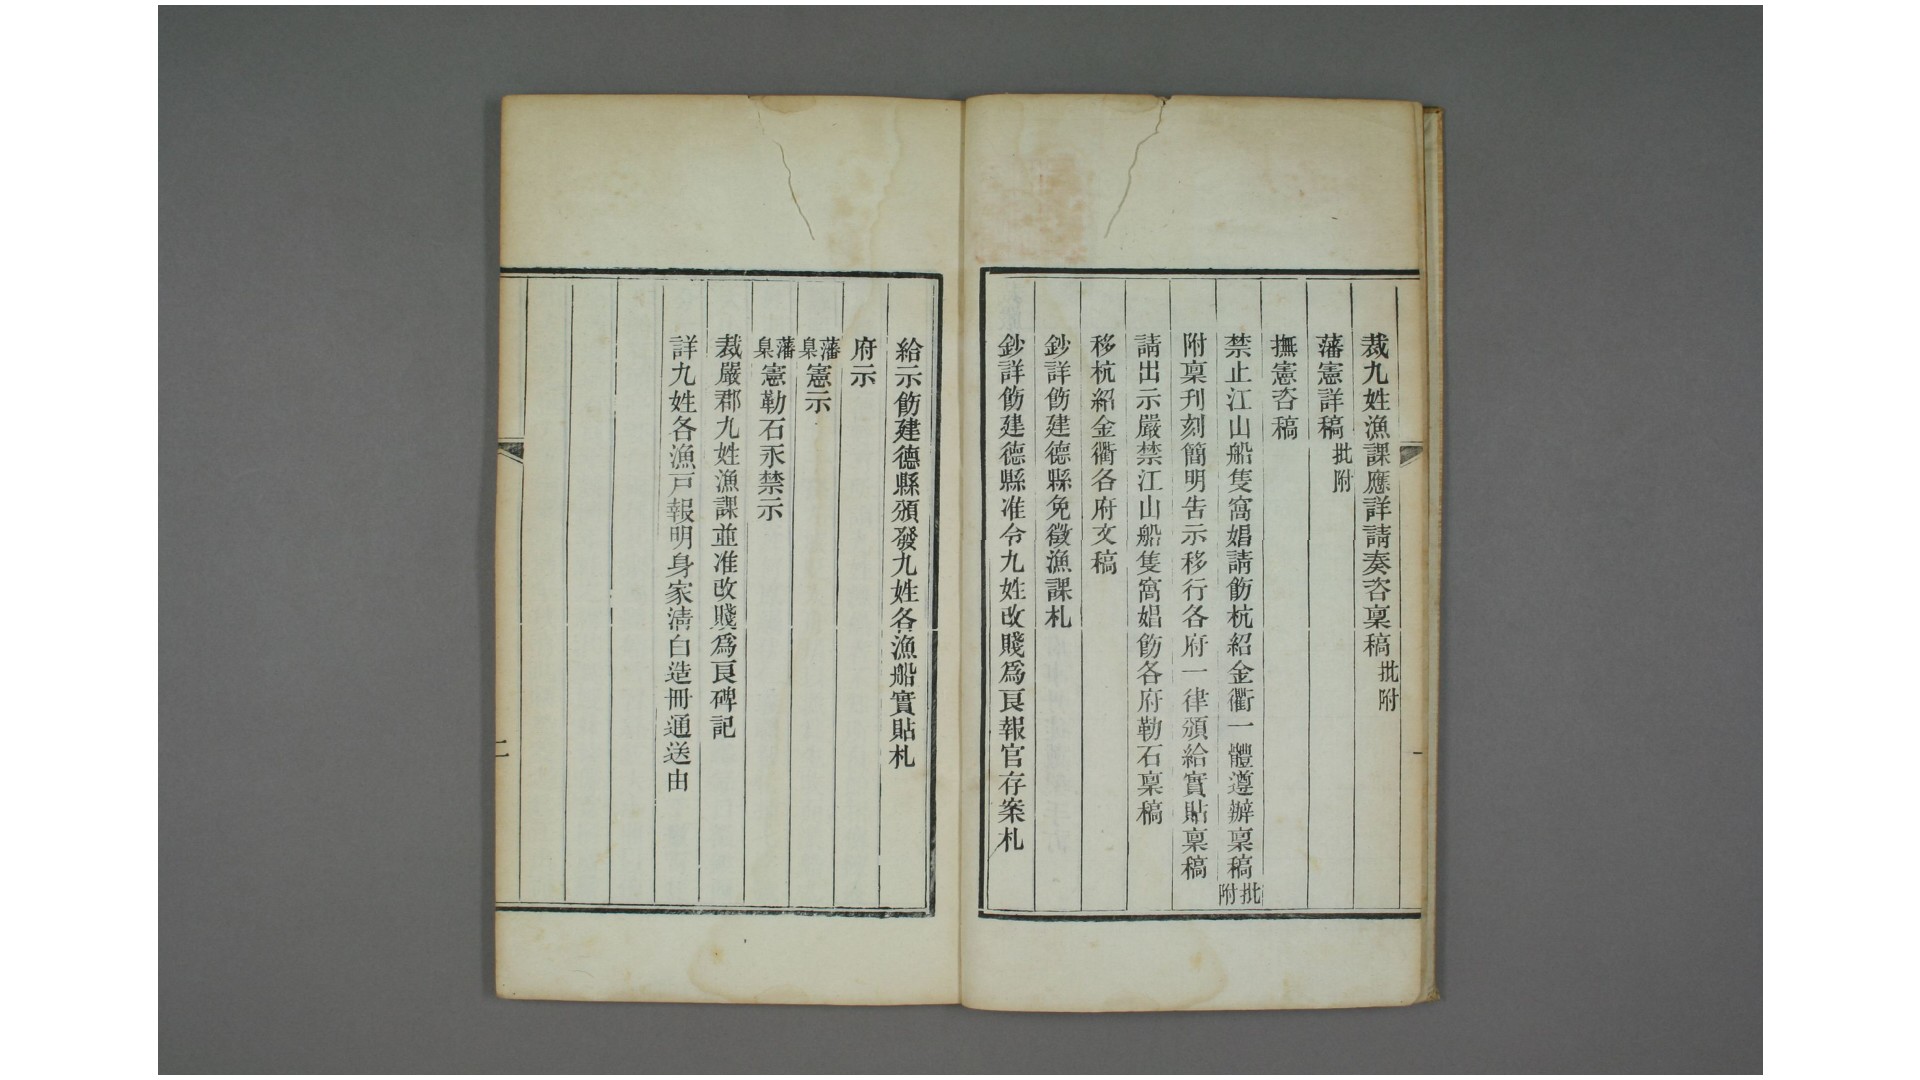 裁九姓漁課應詳請奏咨稟稿批附
藩憲詳稿批附
撫憲咨稿
禁止江山船隻窩娼請飭杭紹金衢一體遵辦稟稿批附
附稟刋刻簡明告示移行各府一律頒給實貼稟稿
請出示嚴禁江山船隻窩娼飭各府勒石稟稿
移杭紹金衢各府文稿
鈔詳飭建德縣免徵漁課札
鈔詳飭建德縣准令九姓改賤爲良報官存案札
一
給示飭建德縣頒發九姓各漁船實貼札
府示
藩臬憲示
藩臬憲勒石永禁示
裁嚴郡九姓漁課並准改賤爲良碑記
詳九姓各漁戸報明身家淸白造冊通送由
二